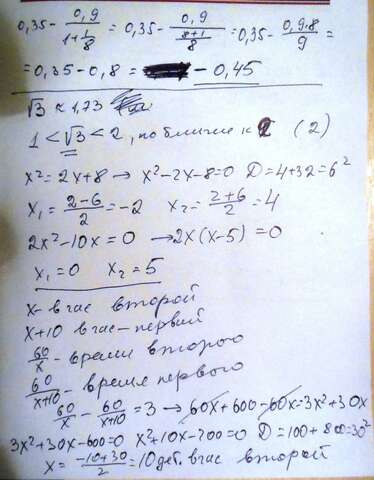 0,35 - 0,9/(1+1/8) = 0,35 - 0,9/((8+1)/8) = 0,35 - 0,9·8/9 =
= 0,35 - 0,8 = - 0,45
√3 ≈ 1,73
1 < √3 < 2, но ближе к 2 (2)
x² = 2x+8 → x²-2x-8=0 D=4+32=6²
x₁ = (2-6)/2 = -2 x₂ = (2+6)/2 = 4
2x²-10x=0 → 2x(x-5)=0
x₁=0 x₂=5
x - в час второй
x+10 в час - первый
60/x - время второго
60/(x+10) - время первого
60/x - 60/(x+10) = 3 → 60x+600-60x=3x²+30x
3x²+30x-600=0 x²+10x-200=0 D=100+800=30²
x = (-10+30)/2 = 10 дет. в час второй